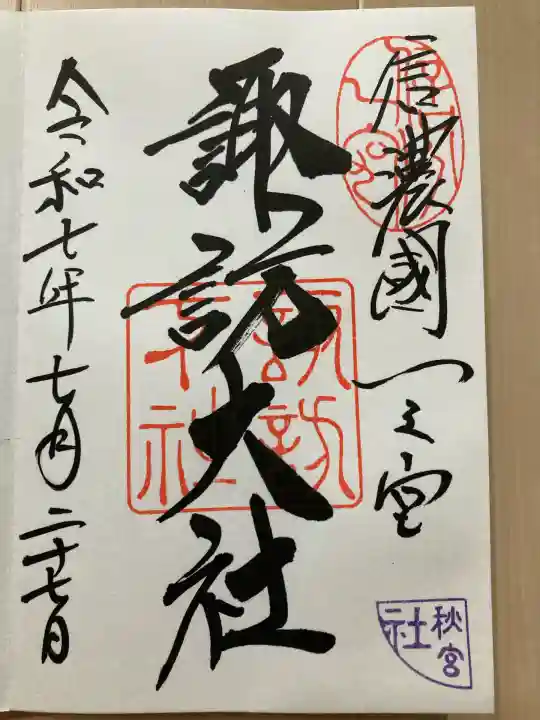 信濃國一之宮
諏訪大社
諏訪
大社
秋宮
社
令和七年七月二十七日